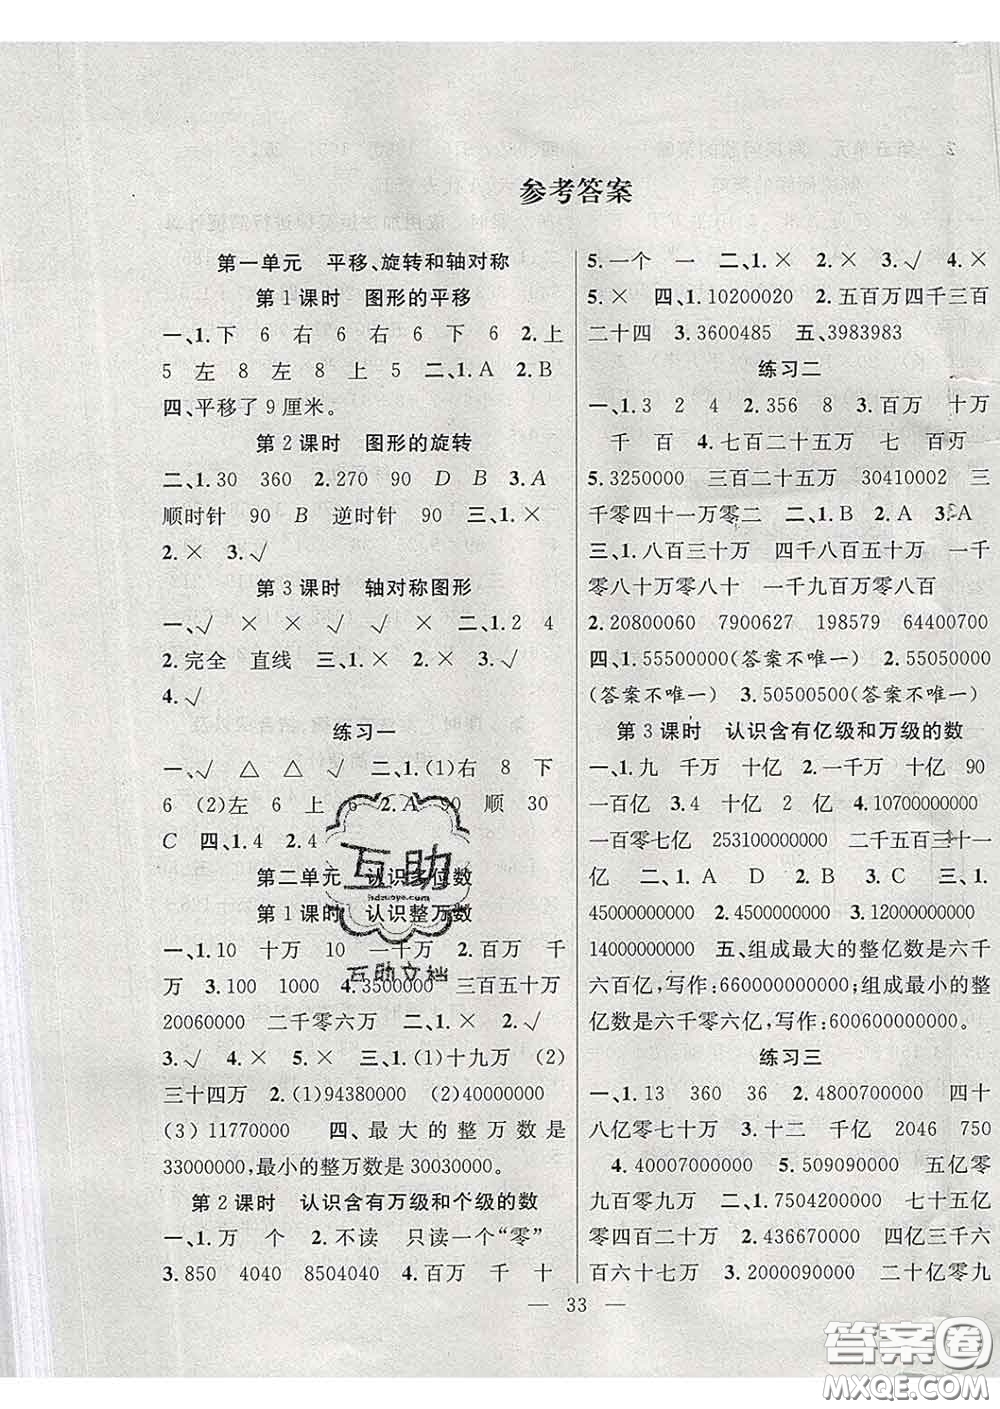 参考答案
第一单元 平移、旋转和轴对称
第1课时 图形的平移
一、1.下 6 右 6 右 6 下 6 2.上
5 左 8 左 8 上 5 二、1.A 2.B
四、平移了9厘米。
第2课时 图形的旋转
二、1.30 360 2.270 90 D B 3.A
顺时针 90 B 逆时针 90 三、1.×
2.× 3.√
第3课时 轴对称图形
一、√ × × √ √ × 二、1.2 4
2.完全 直线 三、1.× 2.× 3.√
4.√
练习一
一、√ △ △ √ 二、1.(1)右 8 下
6 (2)左 6 上 6 2.A 90 顺 30
C 四、1.4 2.4
第二单元 认识多位数
第1课时 认识整万数
一、1.10 十万 10 一千万 2.百万 千
万 3.100 1000 4.3500000 三百五十万
20060000 二千零六万 二、1.× 2.√
3.√ 4.× 5.× 三、1.(1)十九万 (2)
三十四万 2.(1)94380000 (2)480000
(3)11770000 四、最大的整万数是
33000000,最小的整万数是30030000。
第2课时 认识含有万级和个级的数
一、1.万 个 2.不读 只读一个“零”
3.850 4040 8504040 4.百万 千 十
5.一个 一 二、1.× 2.× 3.√ 4.×
5.× 四、1.10200020 2.五百万四千三百
二十四 3.3600485 五、3983983
练习二
一、1.3 2 4 2.356 8 3.百万 十万
千 百 4.七百二十五万 七 百万
5.3250000 三百二十五万 30410002 三
千零四十一万零二 二、1.B 2.A 3.A
三、1.八百三十万 四千八百五十万 一千
零八十万零八十 一千九百万零八百
2.20800060 7900627 198579 64400700
四、1.55500000(答案不唯一) 2.55050000
(答案不唯一) 3.50500500(答案不唯一)
第3课时 认识含有亿级和万级的数
一、1.九 千万 十亿 2.一千万 十亿 90
一百亿 3.4 十亿 2 亿 4.10700000000
一百零七亿 253100000000 二千五百三十一
亿 二、1.A D 2.B 3.C 三、1.
45000000000 2.4500000000 3.12000000000
14000000000 五、组成最大的整亿数是六千
六百亿,写作:660000000000;组成最小的整
亿数是六千零六亿,写作:600600000000。
练习三
一、1.13 360 36 2.4800700000 四十
八亿零七十万 3.十二 千亿 2046 750
4.40007000000 5.509090000 五亿零
九百零九万 二、1.7504200000 七十五亿
零四百二十万 2.436670000 四亿三千六
百六十七万 3.2000090000 二十亿零九
— 33 —
互助
hdzuoye.com
互助文档
答案圈
MXQE.COM